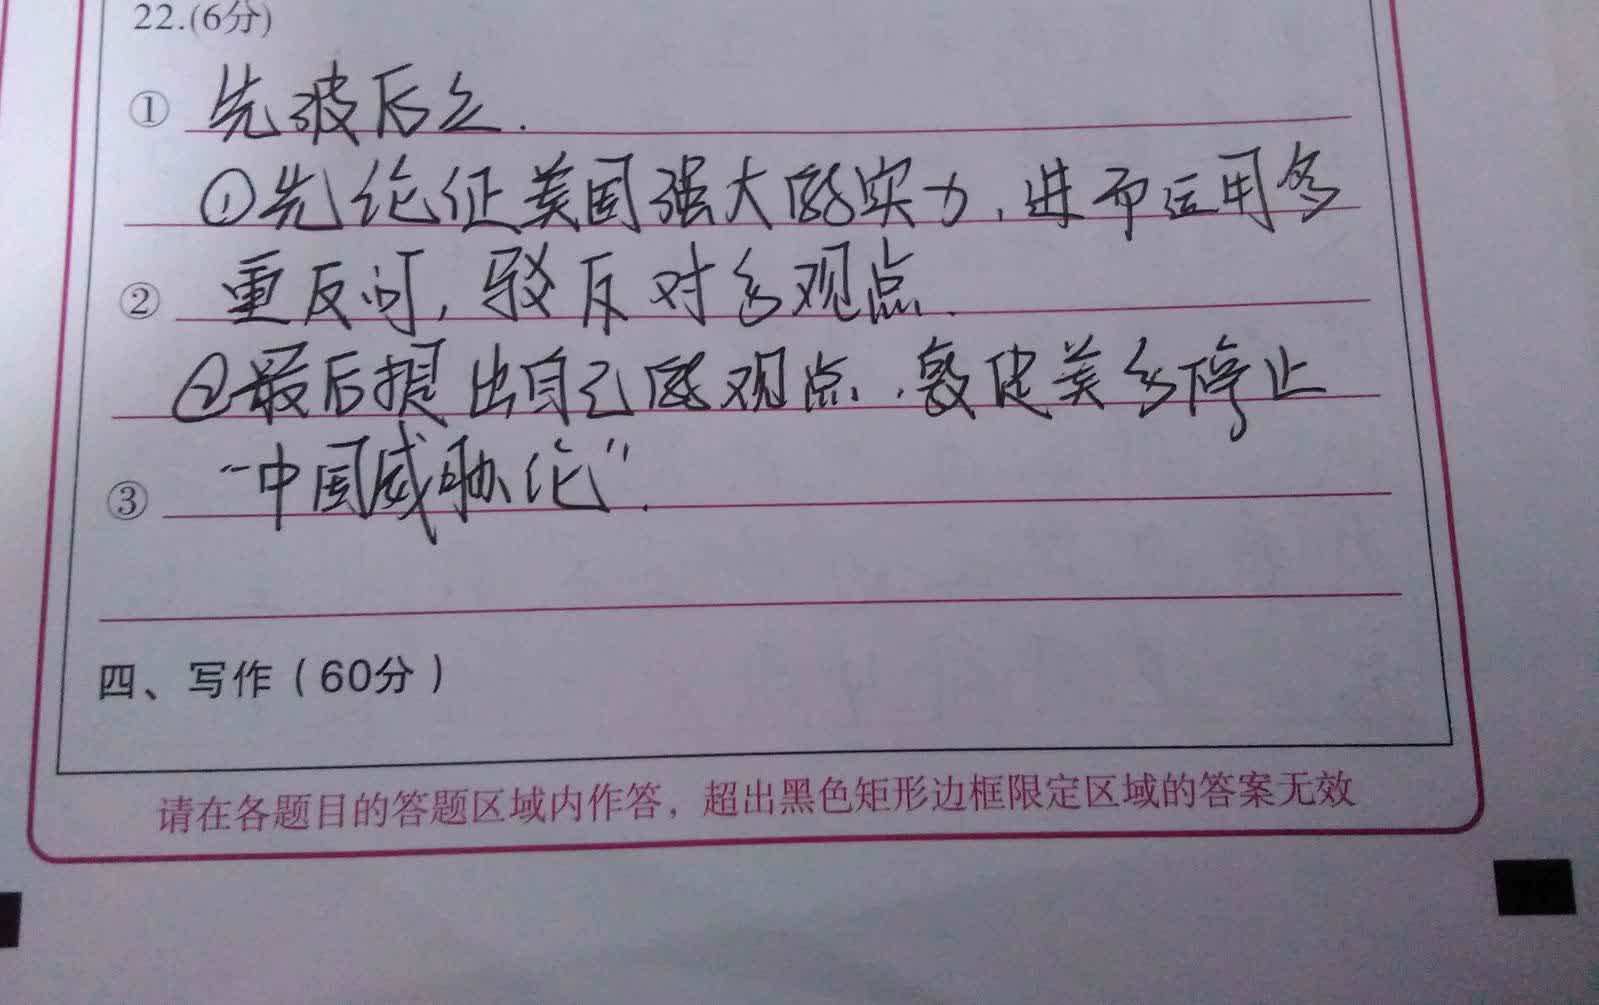 22.(6分)
① 先破后立.
①先论证美国强大的实力,进而运用多
② 重反问,驳反对方观点.
②最后提出自己的观点,敦促美方停止
③ “中国威胁论”.
四、写作(60分)
请在各题目的答题区域内作答，超出黑色矩形边框限定区域的答案无效